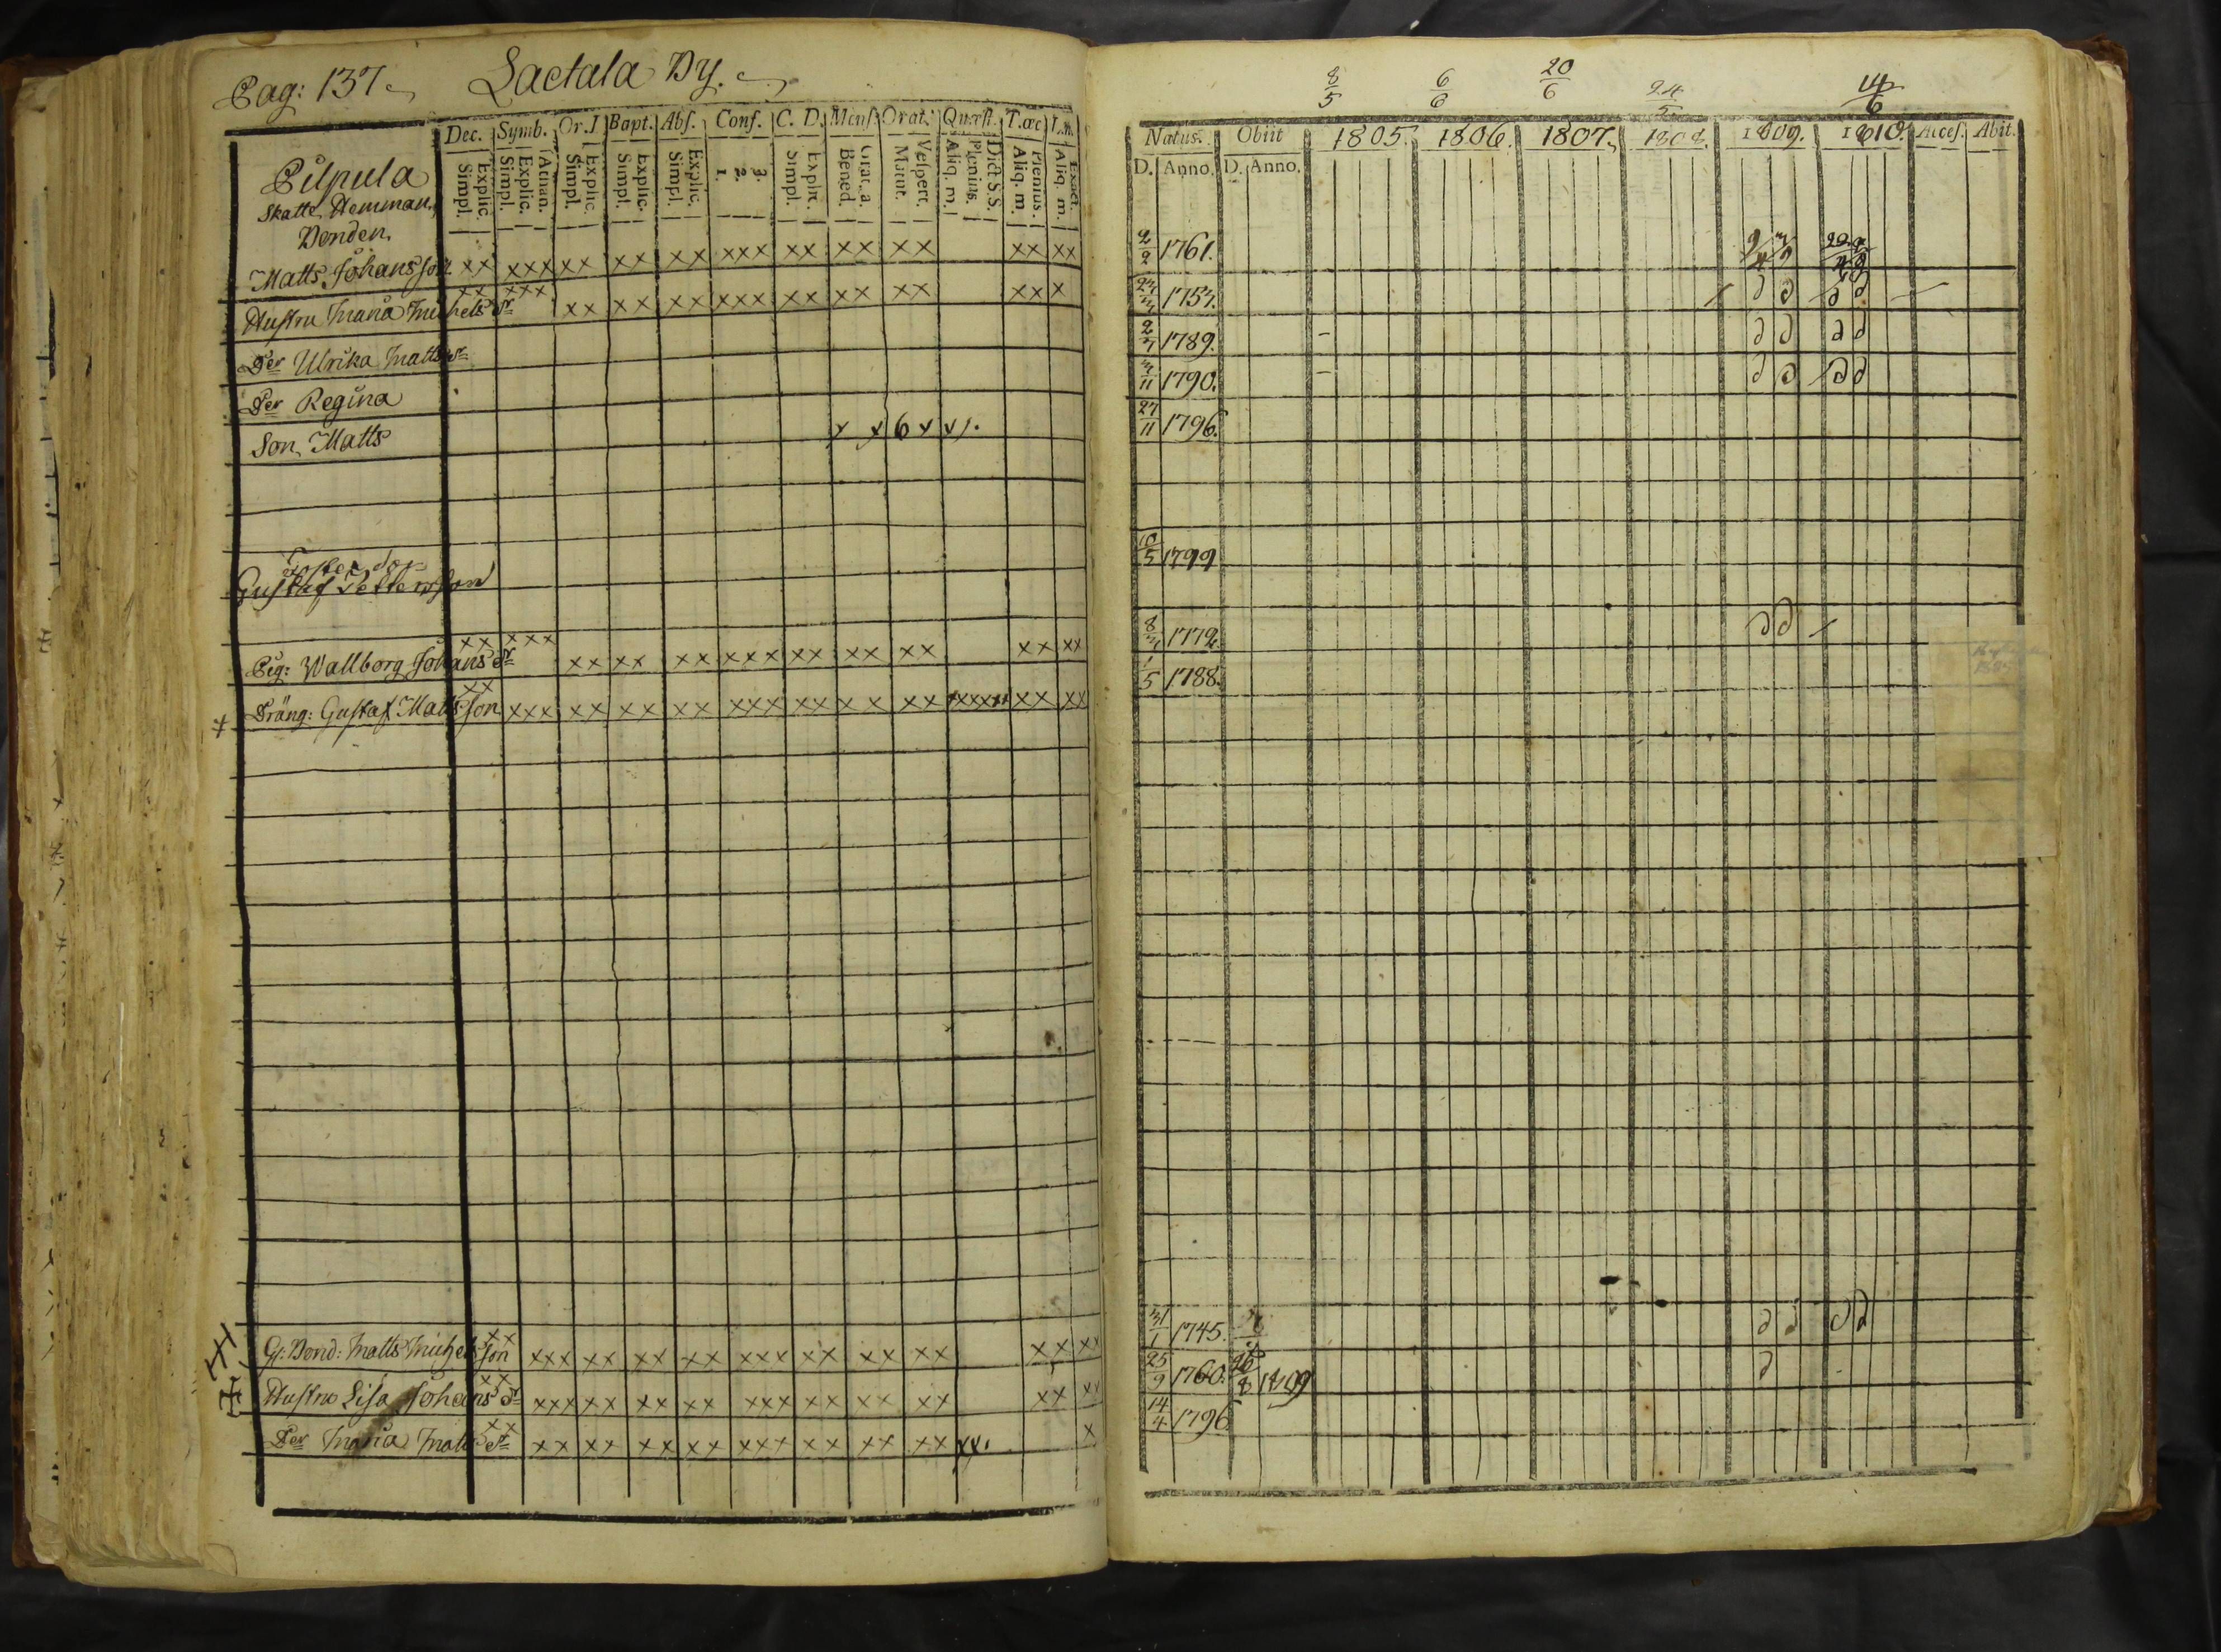 Pag: 137
Laetala By.
Dec. Symb. Or. J Bapt. Abs. Conf. C. D. Mens. Orat. Quæst. T. œc
Explic. Simpl. Athan. Explic. Simpl. Explic. Simpl. Explic. Simpl. Explic. Simpl. 3. 2. 1. Explic. Simpl. Grat. a. Bened. Vespert. Matut. Dict S.S. Plenius. Aliq. m. Plenius. Aliq. m. Exact. Aliq. m.
Pilpula
Skatte Hemman.
Bonden.
Matts Johansson xx xxx xx xx xx xxx xx xx xx xx xx
Hustru Maria Michels dr xx xxx xx xx xx xxx xx xx xx xx x
Der Ulrika Matts dr
Der Regina
Son Matts x x 6 x x
Foster Son
Gustaf Pettersson
Pig: Wallborg Johans dr xx xxx xx xx xx xxx xx xx xx xx xx
Dräng: Gustaf Mattsson xx xxx xx xx xx xxx xx xx xx xxxxx xx xx
G: Bond: Matts Michelsson xx xxx xx xx xx xxx xx xx xx xx xx
Hustru Lisa Johans dr xx xxx xx xx xx xxx xx xx xx xx xx
Der Maria Matts dr xx xx xx xx xx xxx xx xx xx xx. x
8/5 6/6 20/6 24/5 14/6
Natus. Obiit 1805. 1806. 1807. 1808. 1809. 1810. Acces. Abit.
D. Anno. D. Anno.
2/2 1761.
1757.
2/7 1789.
1790.
27/11 1796.
10/5 1799
1772
1/5 1788.
31/1 1745.
25/9 1760. 26/8 1809
14/4 1796